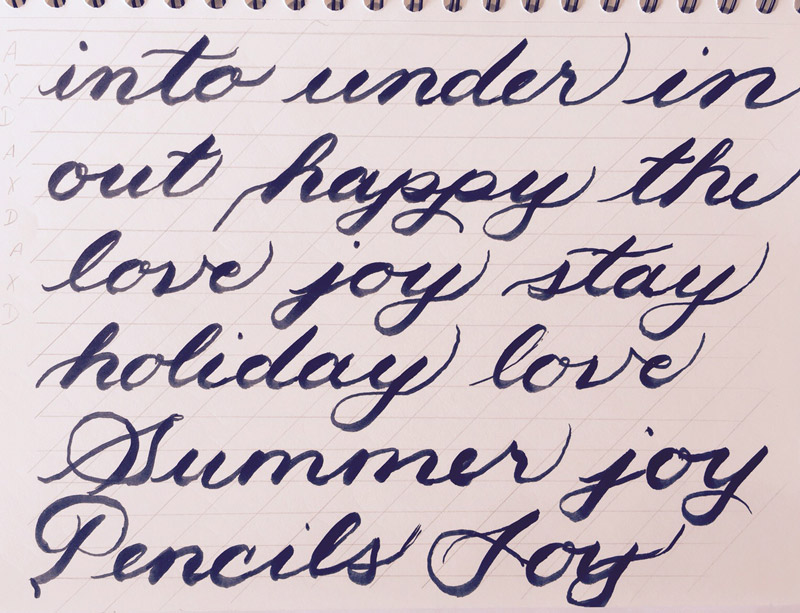 into under in
out happy the
love joy stay
holiday love
Summer joy
Pencils Joy